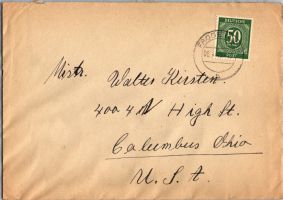 DEUTSCHE
50
Mistr. Walter Kirsten.
400 4 N High St.
Calumbus Ohio
U. S. A